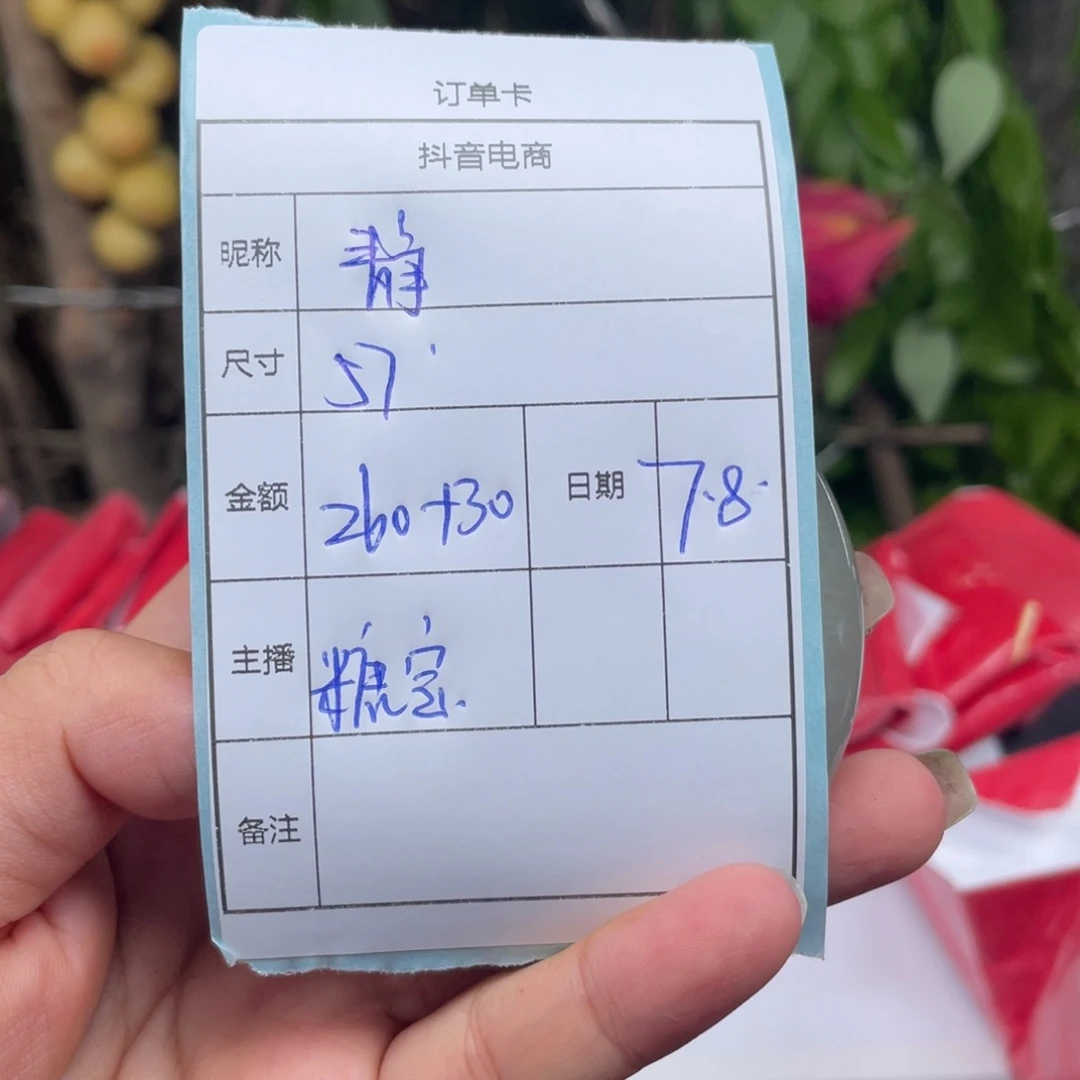 订单卡
抖音电商
昵称 静
尺寸 57
金额 260+30 日期 7.8.
主播 糖宝
备注